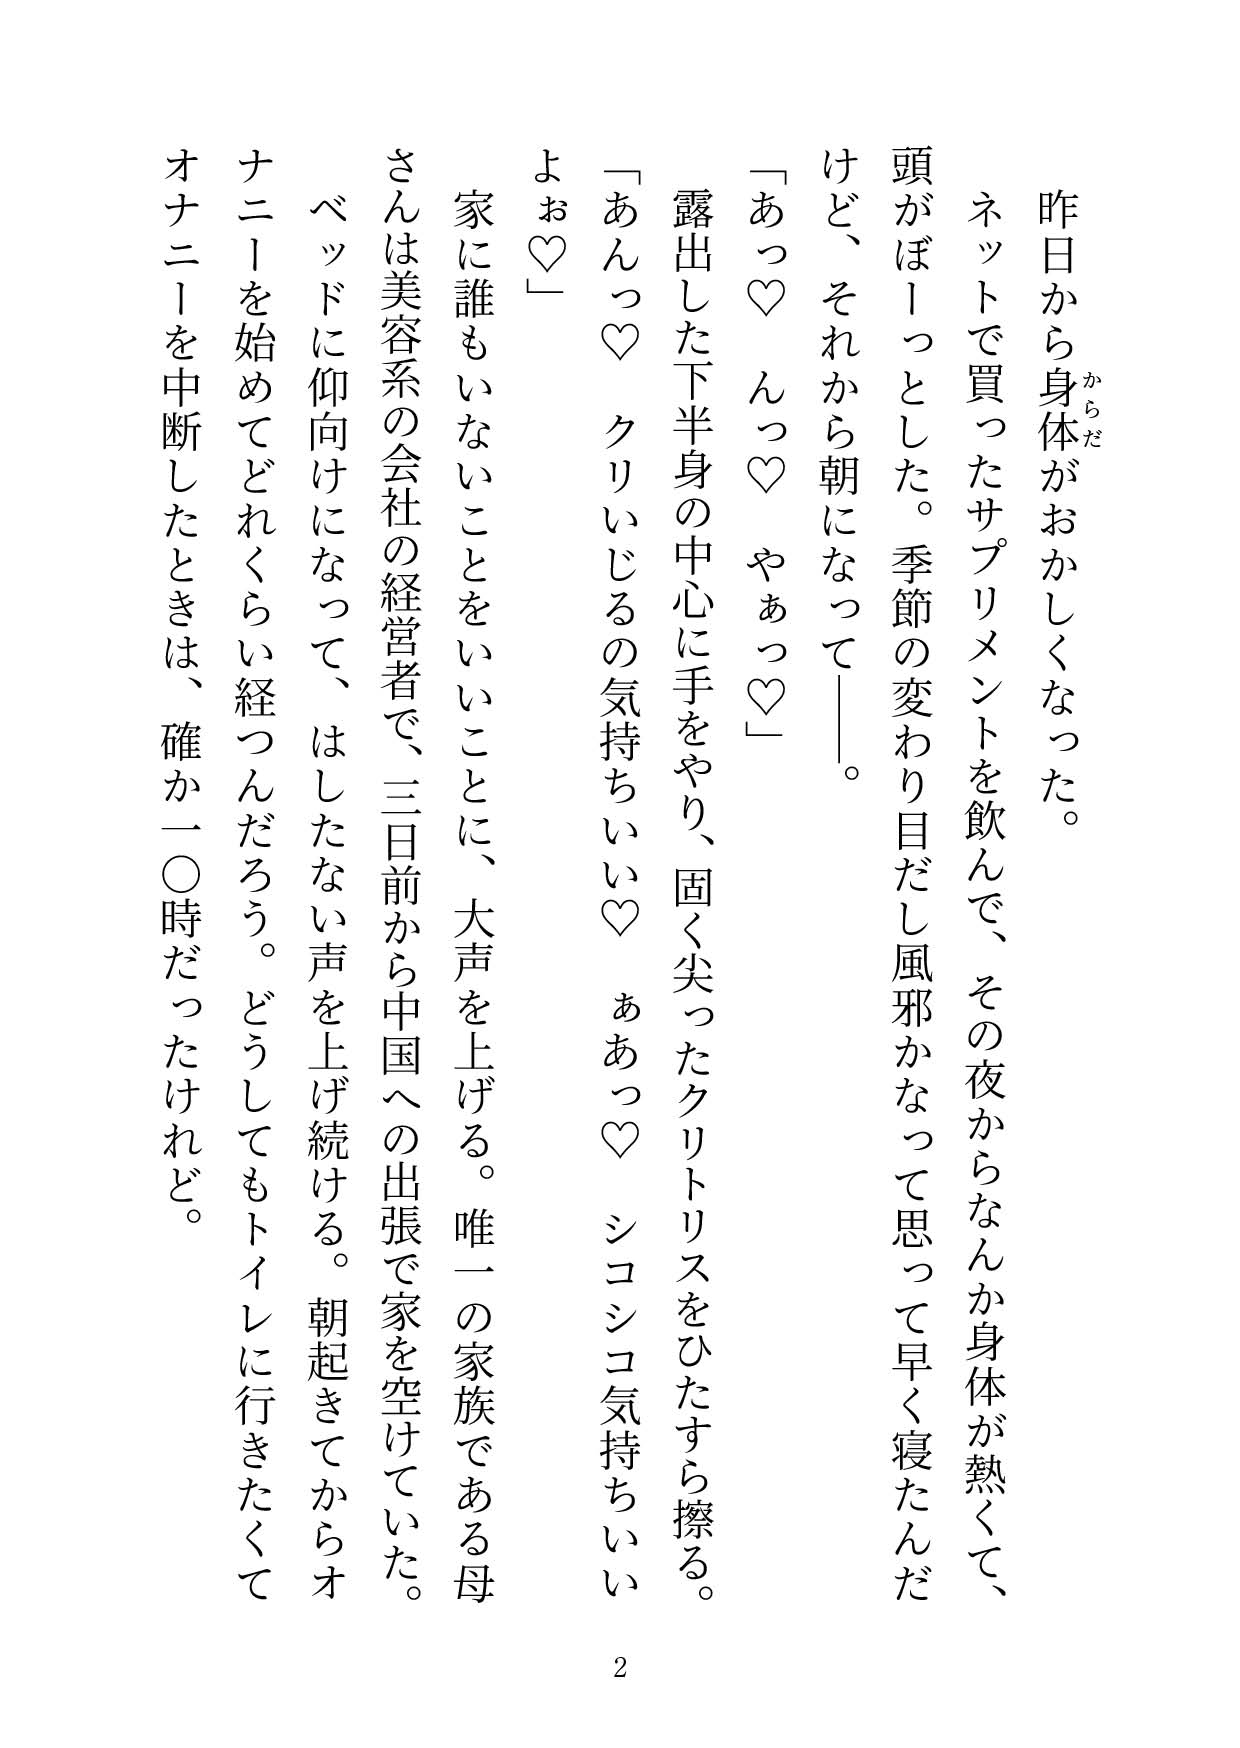 昨日から身体がおかしくなった。
からだ
ネットで買ったサプリメントを飲んで、その夜からなんか身体が熱くて、
頭がぼーっとした。季節の変わり目だし風邪かなって思って早く寝たんだ
けど、それから朝になって――。
「あっ♡　んっ♡　やぁっ♡」
露出した下半身の中心に手をやり、固く尖ったクリトリスをひたすら擦る。
「あんっ♡　クリいじるの気持ちいい♡　ぁあっ♡　シコシコ気持ちいい
よぉ♡」
家に誰もいないことをいいことに、大声を上げる。唯一の家族である母
さんは美容系の会社の経営者で、三日前から中国への出張で家を空けていた。
ベッドに仰向けになって、はしたない声を上げ続ける。朝起きてからオ
ナニーを始めてどれくらい経つんだろう。どうしてもトイレに行きたくて
オナニーを中断したときは、確か一〇時だったけれど。
2